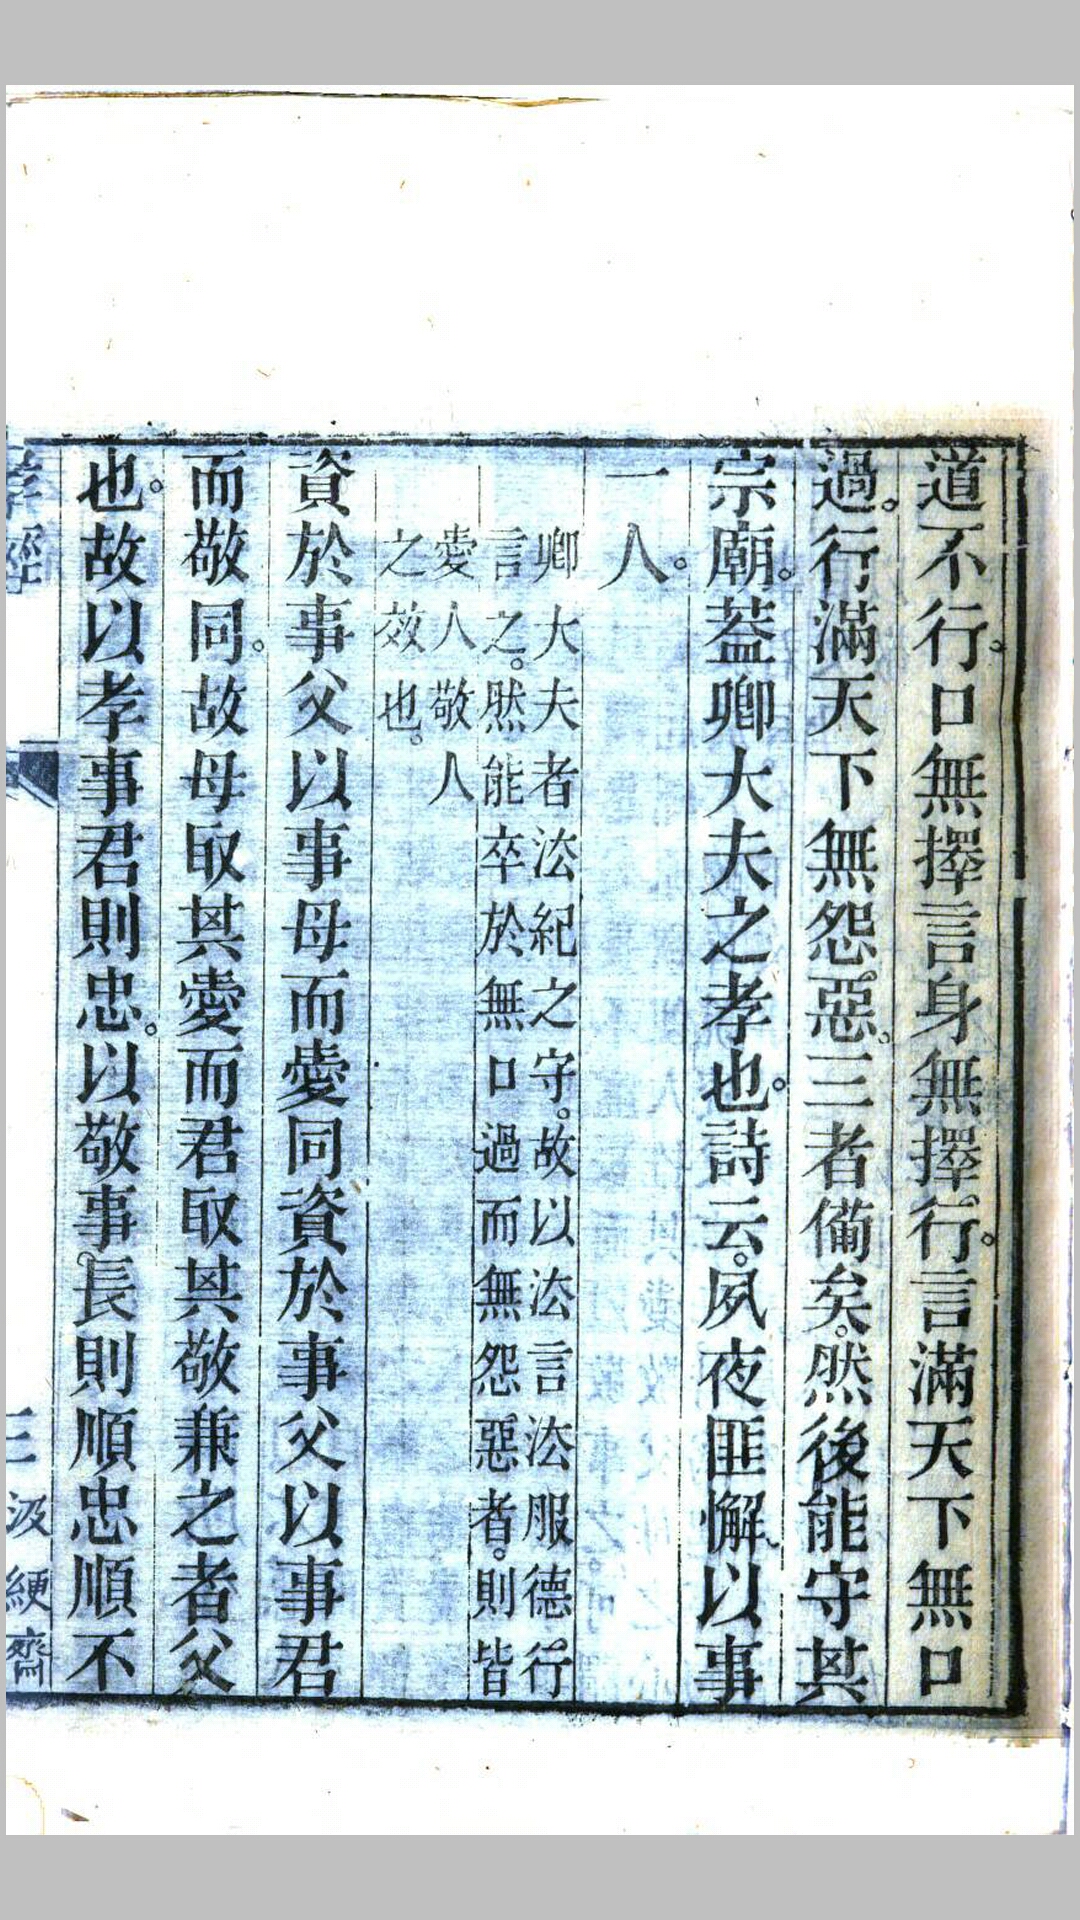 道不行。口無擇言身無擇行。言滿天下無口
過。行滿天下無怨惡。三者備矣。然後能守其
宗廟。葢卿大夫之孝也。詩云。夙夜匪懈、以事
一人。
卿大夫者法紀之守。故以法言法服德行
言之。然能卒於無口過而無怨惡者。則皆
愛人敬人
之效也。
資於事父以事母而愛同資於事父以事君
而敬同。故母取其愛而君取其敬兼之者父
也。故以孝事君則忠。以敬事長則順忠順不
孝經
三 汲綆齋